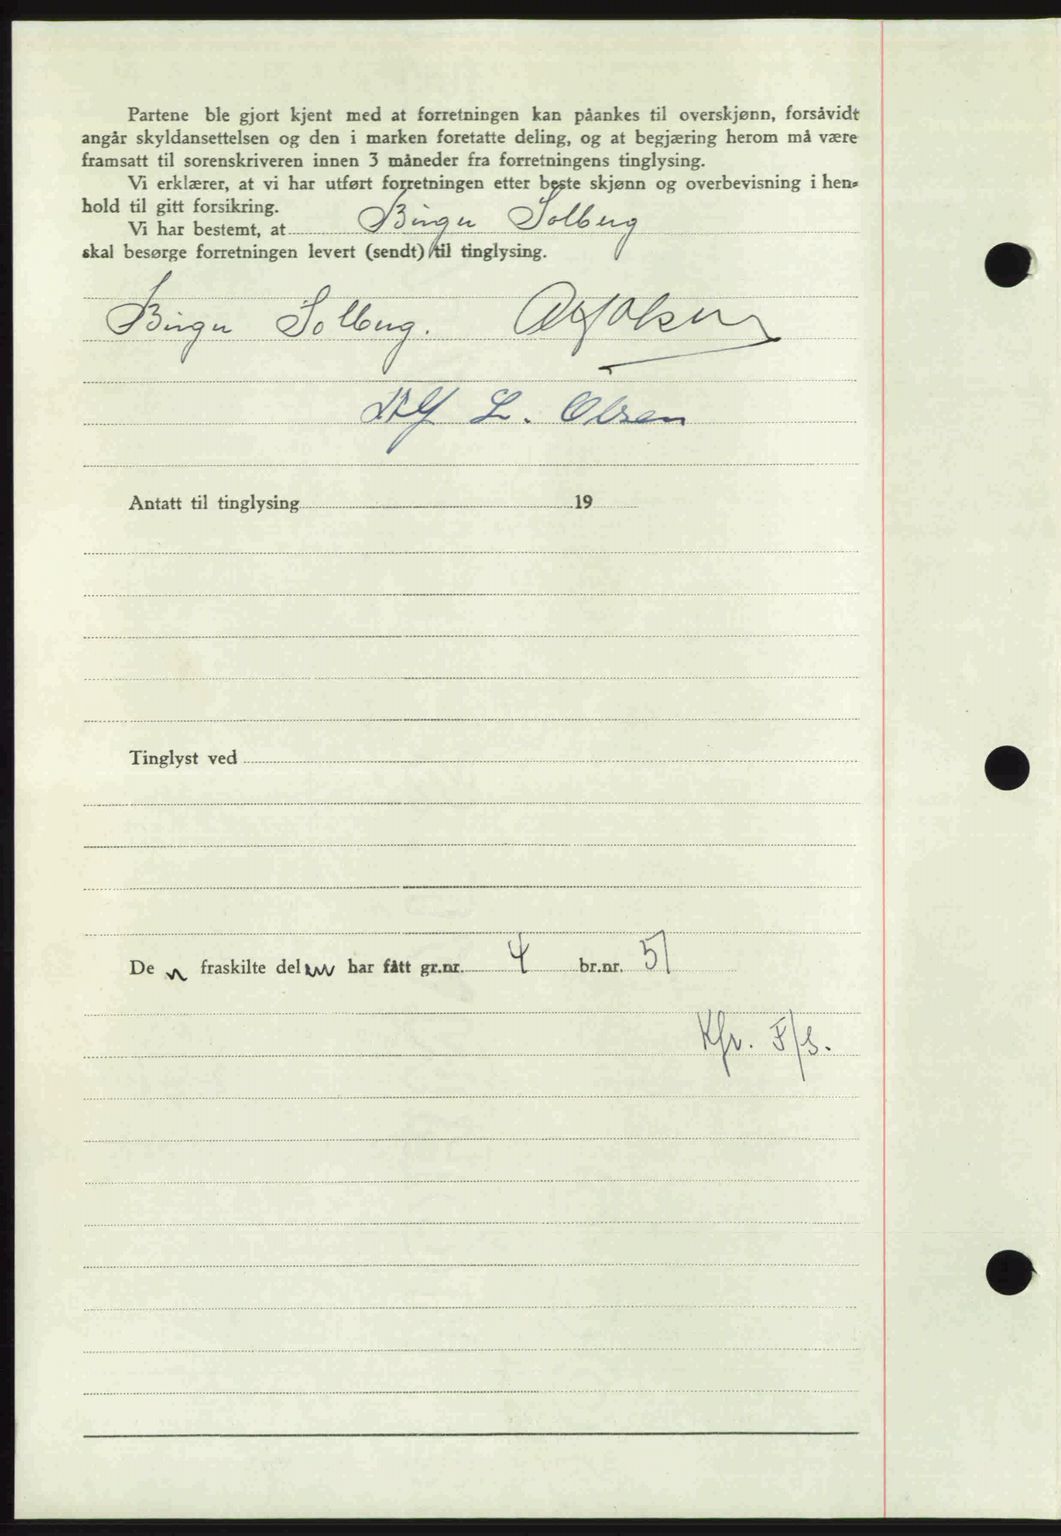 Partene ble gjort kjent med at forretningen kan påankes til overskjønn, forsåvidt
angår skyldansettelsen og den i marken foretatte deling, og at begjæring herom må være
framsatt til sorenskriveren innen 3 måneder fra forretningens tinglysing.
Vi erklærer, at vi har utført forretningen etter beste skjønn og overbevisning i hen-
hold til gitt forsikring.
Vi har bestemt, at Birger Solberg
skal besørge forretningen levert (sendt) til tinglysing.
Birger Solberg.
Alf L. Olsen
Antatt til tinglysing 19
Tinglyst ved
De n fraskilte del har fått gr.nr. 4 br.nr. 51
Kfr. F/S.